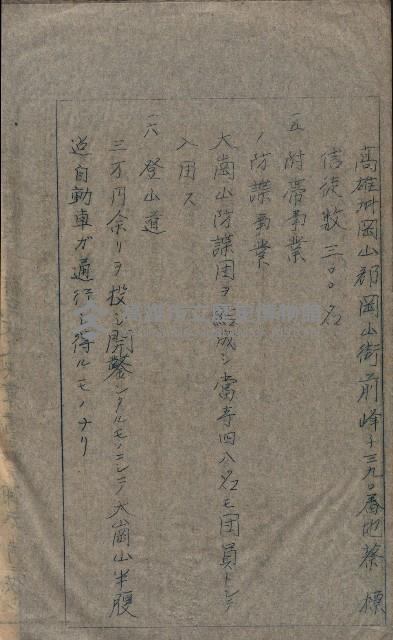 高雄州岡山郡岡山街前峰十三九〇番地蔡 標
信徒数 三〇〇名
一五 附帯事業
ノ防諜事業
大崗山防諜団ヲ結成シ當寺四八名モ団員トシテ
入団ス
一六 登山道
三万円余リヲ投ジ開鑿シタルモノニシテ大崗山半腹
迠自動車ガ通行シ得ルモノナリ
高雄市立歷史博物館